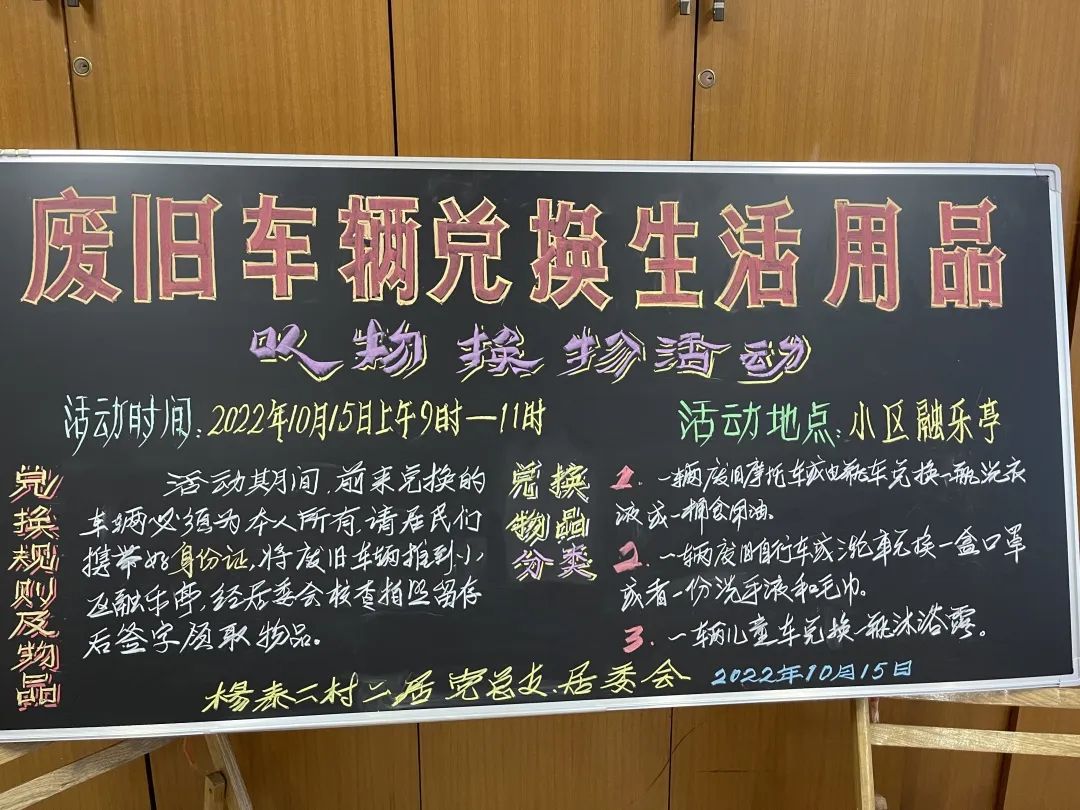 废旧车辆兑换生活用品
以物换物活动
活动时间:2022年10月15日上午9时—11时
活动地点:小区融乐亭
兑换规则及物品
活动期间,前来兑换的
车辆必须为本人所有,请居民们
携带好身份证,将废旧车辆推到小
区融乐亭,经居委会核查拍照留存
后签字领取物品。
兑换
物品
分类
1. 一辆废旧摩托车或电瓶车兑换一瓶洗衣
液或一桶食用油。
2. 一辆废旧自行车或三轮车兑换一盒口罩
或者一份洗手液和毛巾。
3. 一辆儿童车兑换一瓶沐浴露。
杨泰二村二居党总支、居委会
2022年10月15日